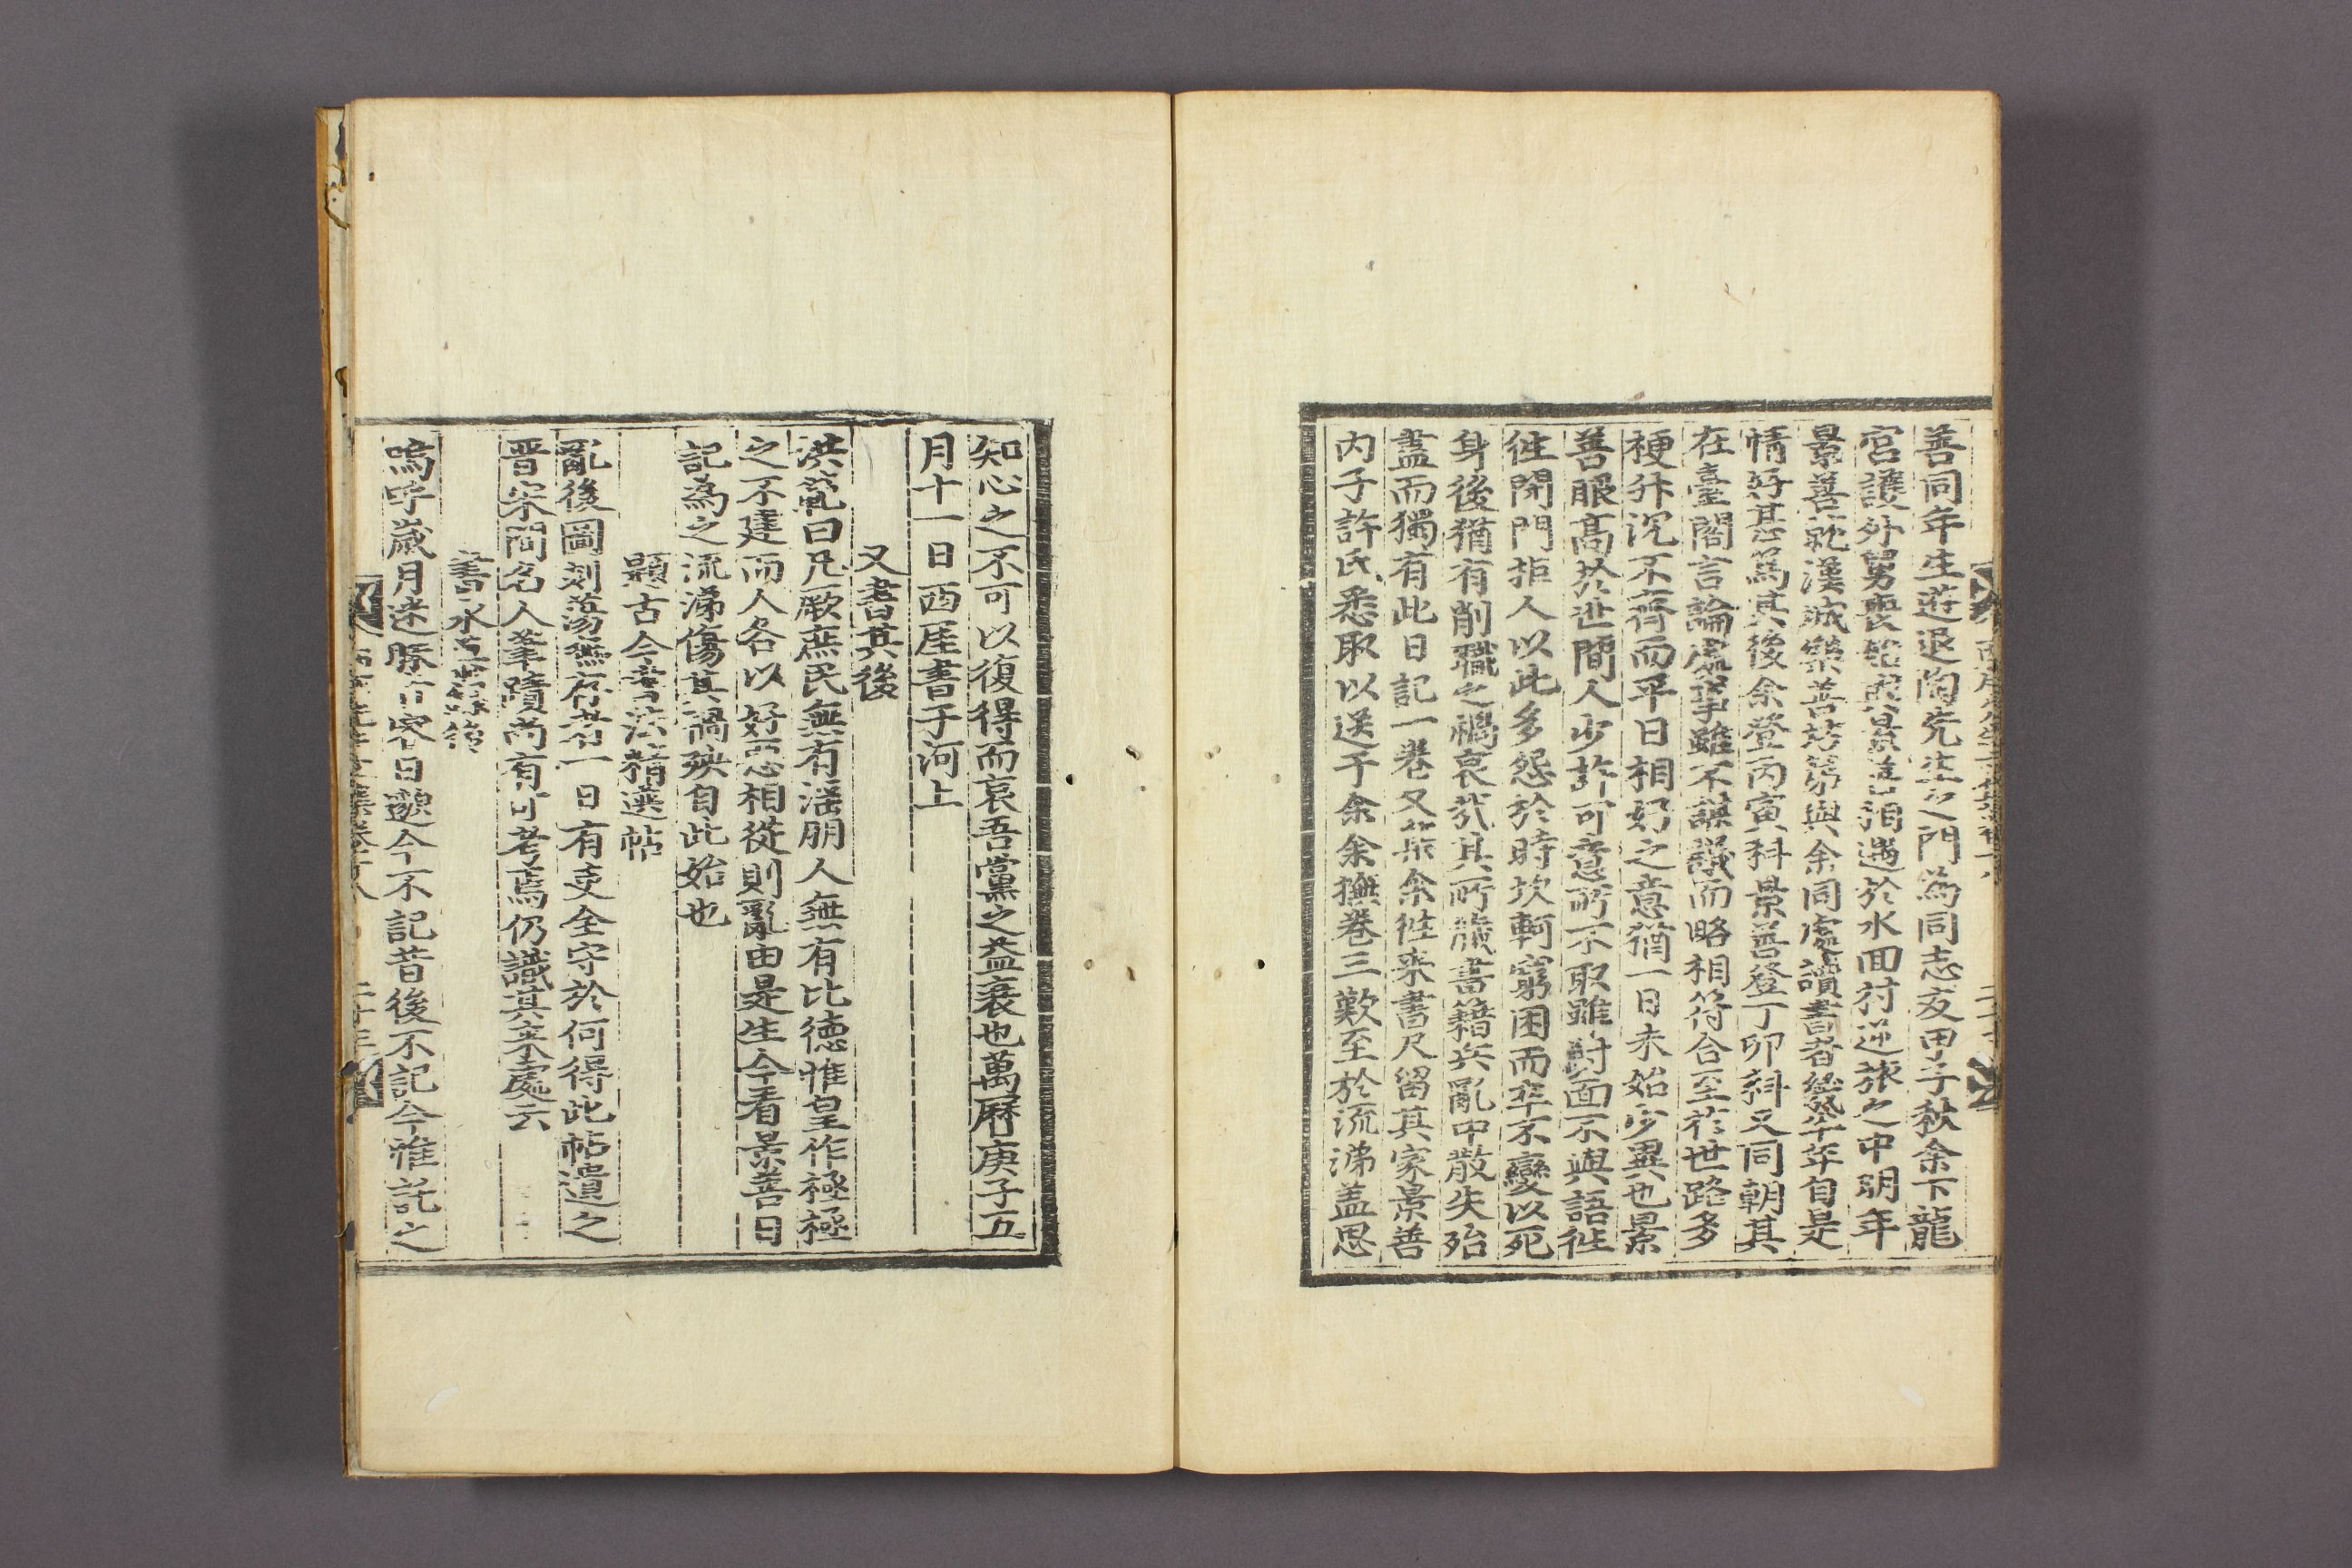 善同年生遊退陶先生之門為同志友甲子秋余下龍
宮護外舅喪
景善
遇於水回村逆旅之中明年
景善就漢城樂善坊第與余同處讀書者幾半年自是
情好甚篤其後余登丙寅科景善登丁卯科又同朝其
在臺閣言論處事雖不謀議而略相符合至於世路多
梗升沉不齊而平日相好之意猶一日未始少異也景
善眼高於世間人少許可意所不取雖對面不與語徃
徃閉門拒人以此多怨於時坎軻窮困而卒不變以死
身後猶有削職之禍哀哉其所藏書籍兵亂中散失殆
盡而獨有此日記一卷又裒余徃来書尺留其家景善
内子許氏悉取以送于余余撫卷三歎至於流涕盖思
知心之不可以復得而哀吾黨之益衰也萬曆庚子五
月十一日西厓書于河上
又書其後
洪範曰凡厥庶民無有淫朋人無有比德惟皇作極極
之不建而人各以好惡相從則亂由是生今看景善日
記為之流涕傷其禍殃自此始也
題古今書法精選帖
亂後圖刻蕩無存者一日有吏全守於何得此帖遺之
晋宋間名人筆蹟尚有可考焉仍識其来處云
書水
嗚呼歲月迷
今不記昔後不記今惟託之